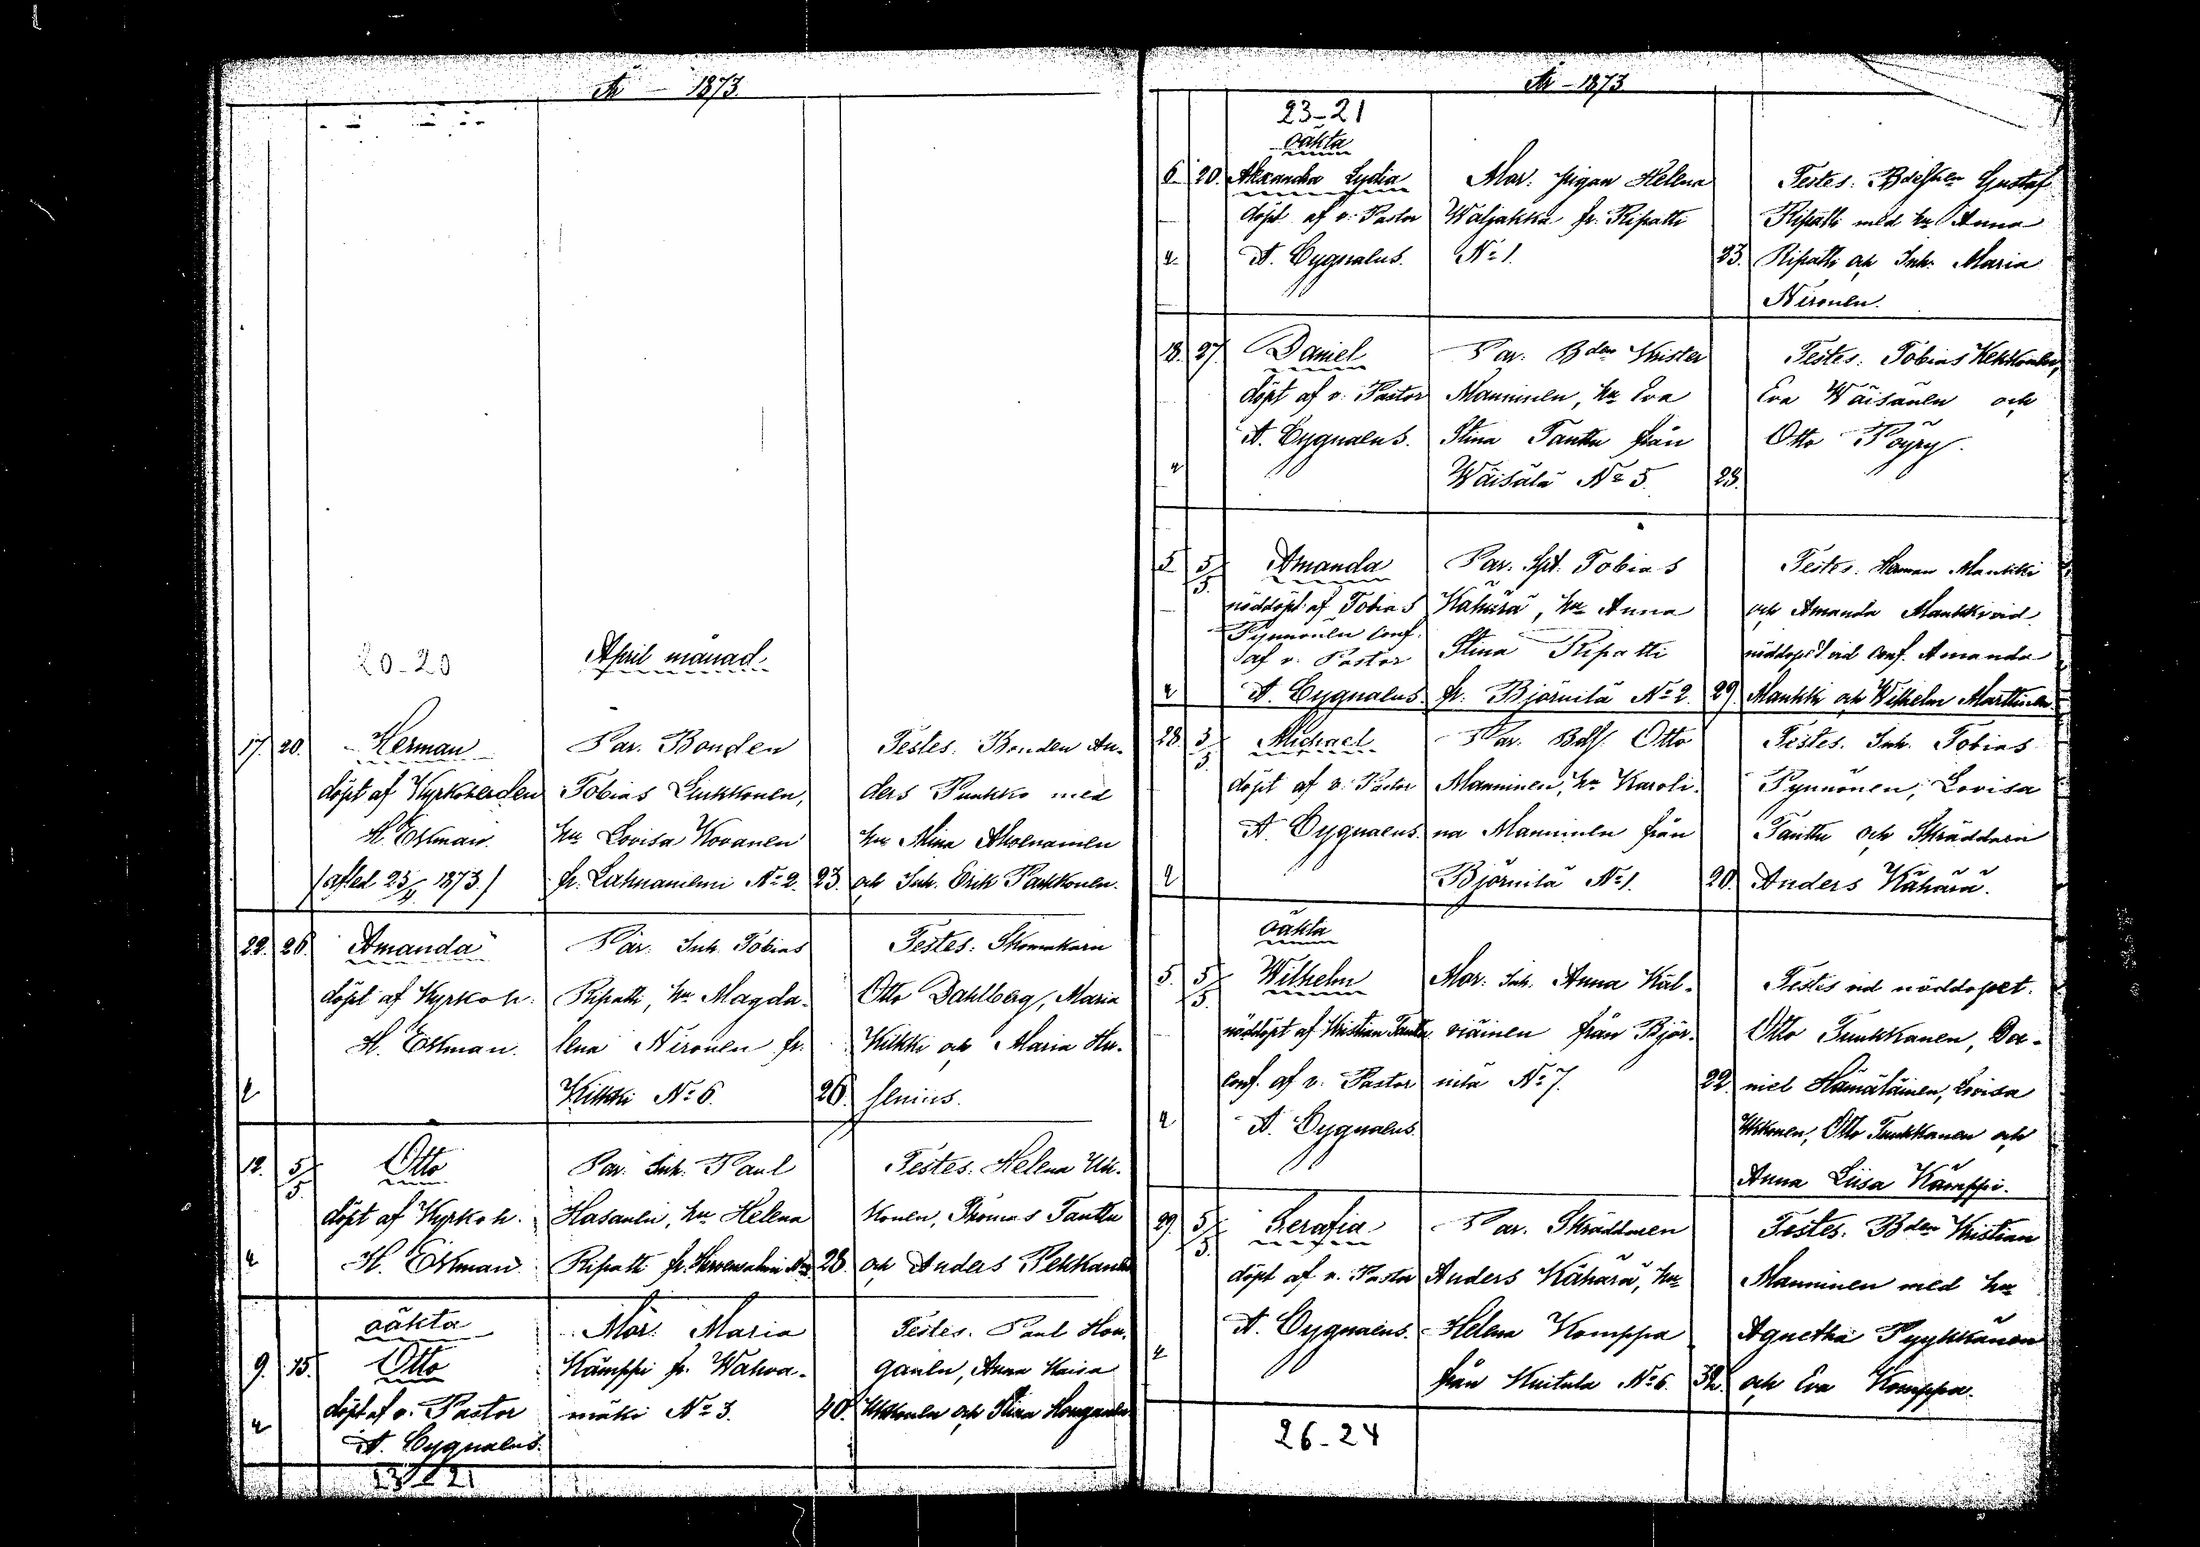 År - 1873.
20-20
April månad.
17. 20.
Herman
döpt af Kyrkoherden
H. Ekman.
(afled 25/4 1873.)
Par. Bonden
Tobias Liukkonen,
hu Lovisa Kovanen
fr. Lahnaniemi No 2.
23.
Testes. Bonden An-
ders Punkko med
hu Mina Aholnainen
och Inh. Erik Paukkonen.
22. 26.
Amanda
döpt af Kyrkoh.
H. Ekman.
Par. Inh. Tobias
Ripatti, hu Magda-
lena Nironen fr.
Kilkki No 6.
26.
Testes. Skomakarn
Otto Dahlberg, Maria
Kilkki och Maria Hu-
12. 5/5.
Otto
döpt af Kyrkoh.
H. Ekman.
Par. Inh. Paul
Hasanen, hu Helena
Ripatti fr.
28.
Testes. Helena Uk-
konen, Thomas Tanttu
och Anders Pekkanen
9. 15.
oäkta
Otto
döpt af v. Pastor
A. Cygnæus.
Mor. Maria
Kämppi fr. Wahva-
mäki No 3.
40.
Testes. Paul Hon-
ganen, Anna Kaisa
Ukkonen och Stina Honganen
23-21
År - 1873
23-21
oäkta
6. 20.
Alexandra Lydia
döpt af v. Pastor
A. Cygnæus.
Mor. pigan Helena
Waljakka fr. Ripatti
No 1.
23.
Testes. Gustaf
Ripatti med hu Anna
Ripatti och Inh. Maria
Nironen.
18. 27.
Daniel
döpt af v. Pastor
A. Cygnæus.
Par. Bden Krister
Manninen, hu Eva
Stina Tanttu från
Wäisälä No 5.
23.
Testes. Tobias Kekkonen,
Eva Wäisänen och
Otto Pöyry.
5. 5/5.
Amanda
nöddöpt af Tobias
Pynnönen Conf.
af v. Pastor
A. Cygnæus.
Par. Spt. Tobias
Kähärä, hu Anna
Stina Ripatti
fr. Björnilä No 2.
29.
Testes. Herman Mankki
och Amanda Mankki vid
nöddopet vid Conf. Amanda
Mankki och Wilhelm Marttinen
28. 3/5
Michael
döpt af v. Pastor
A. Cygnæus.
Par. Bdes. Otto
Manninen, hu Karoli-
na Manninen från
Björnilä No 1.
20.
Testes. Inh. Tobias
Pynnönen, Lovisa
Tanttu och Skräddarn
Anders Kähärä.
oäkta
5. 5/5.
Wilhelm
nöddöpt af Kristian Tanttu
Conf. af v. Pastor
A. Cygnæus.
Mor. Inh. Anna Käl-
viäinen från Björ-
nilä No 7.
22.
Testes vid nöddopet.
Otto Funkkanen, Da-
niel Hämäläinen, Lovisa
Ukkonen, Otto Funkkanen och
Anna Liisa Kämppi.
29. 5/5.
Serafia
döpt af v. Pastor
A. Cygnæus.
Par. Skräddaren
Anders Kähärä, hu
Helena Komppa
från Kuitula No 6.
32.
Testes. Bden Kristian
Manninen med hu
Agnetha Pyykkänen
och Eva Komppa.
26-24